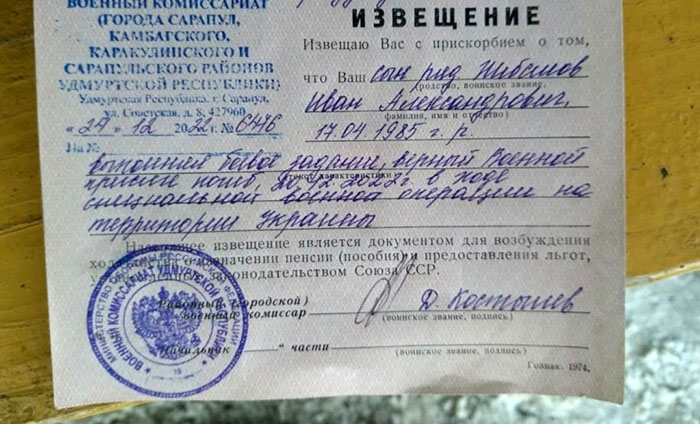 ВОЕННЫЙ КОМИССАРИАТ
(ГОРОДА САРАПУЛ,
КАМБАРСКОГО,
КАРАКУЛИНСКОГО И
САРАПУЛЬСКОГО РАЙОНОВ
УДМУРТСКОЙ РЕСПУБЛИКИ)
Удмуртская Республика, г. Сарапул,
ул. Советская, д. 8, 427960
«27» 12 2022г. № 6476
На №
ИЗВЕЩЕНИЕ
Извещаю Вас с прискорбием о том,
что Ваш сын ряд
(родство, воинское звание,
Иван Александрович,
фамилия, имя и отчество)
17.04.1985 г.р.
выполняя боевое задание, верный Военной
(текст характеристики)
присяге погиб, 20.12.2022г в ходе
специальной военной операции на
территории Украины
Настоящее извещение является документом для возбуждения
ходатайства о назначении пенсии (пособия) и предоставления льгот,
законодательством Союза ССР.
Районный (городской)
военный комиссар Д. Костышев
(воинское звание, подпись)
Начальник части
(воинское звание, подпись)
Гознак. 1974.
МИНИСТЕРСТВО ОБОРОНЫ РОССИЙСКОЙ ФЕДЕРАЦИИ
ВОЕННЫЙ КОМИССАРИАТ УДМУРТСКОЙ РЕСПУБЛИКИ